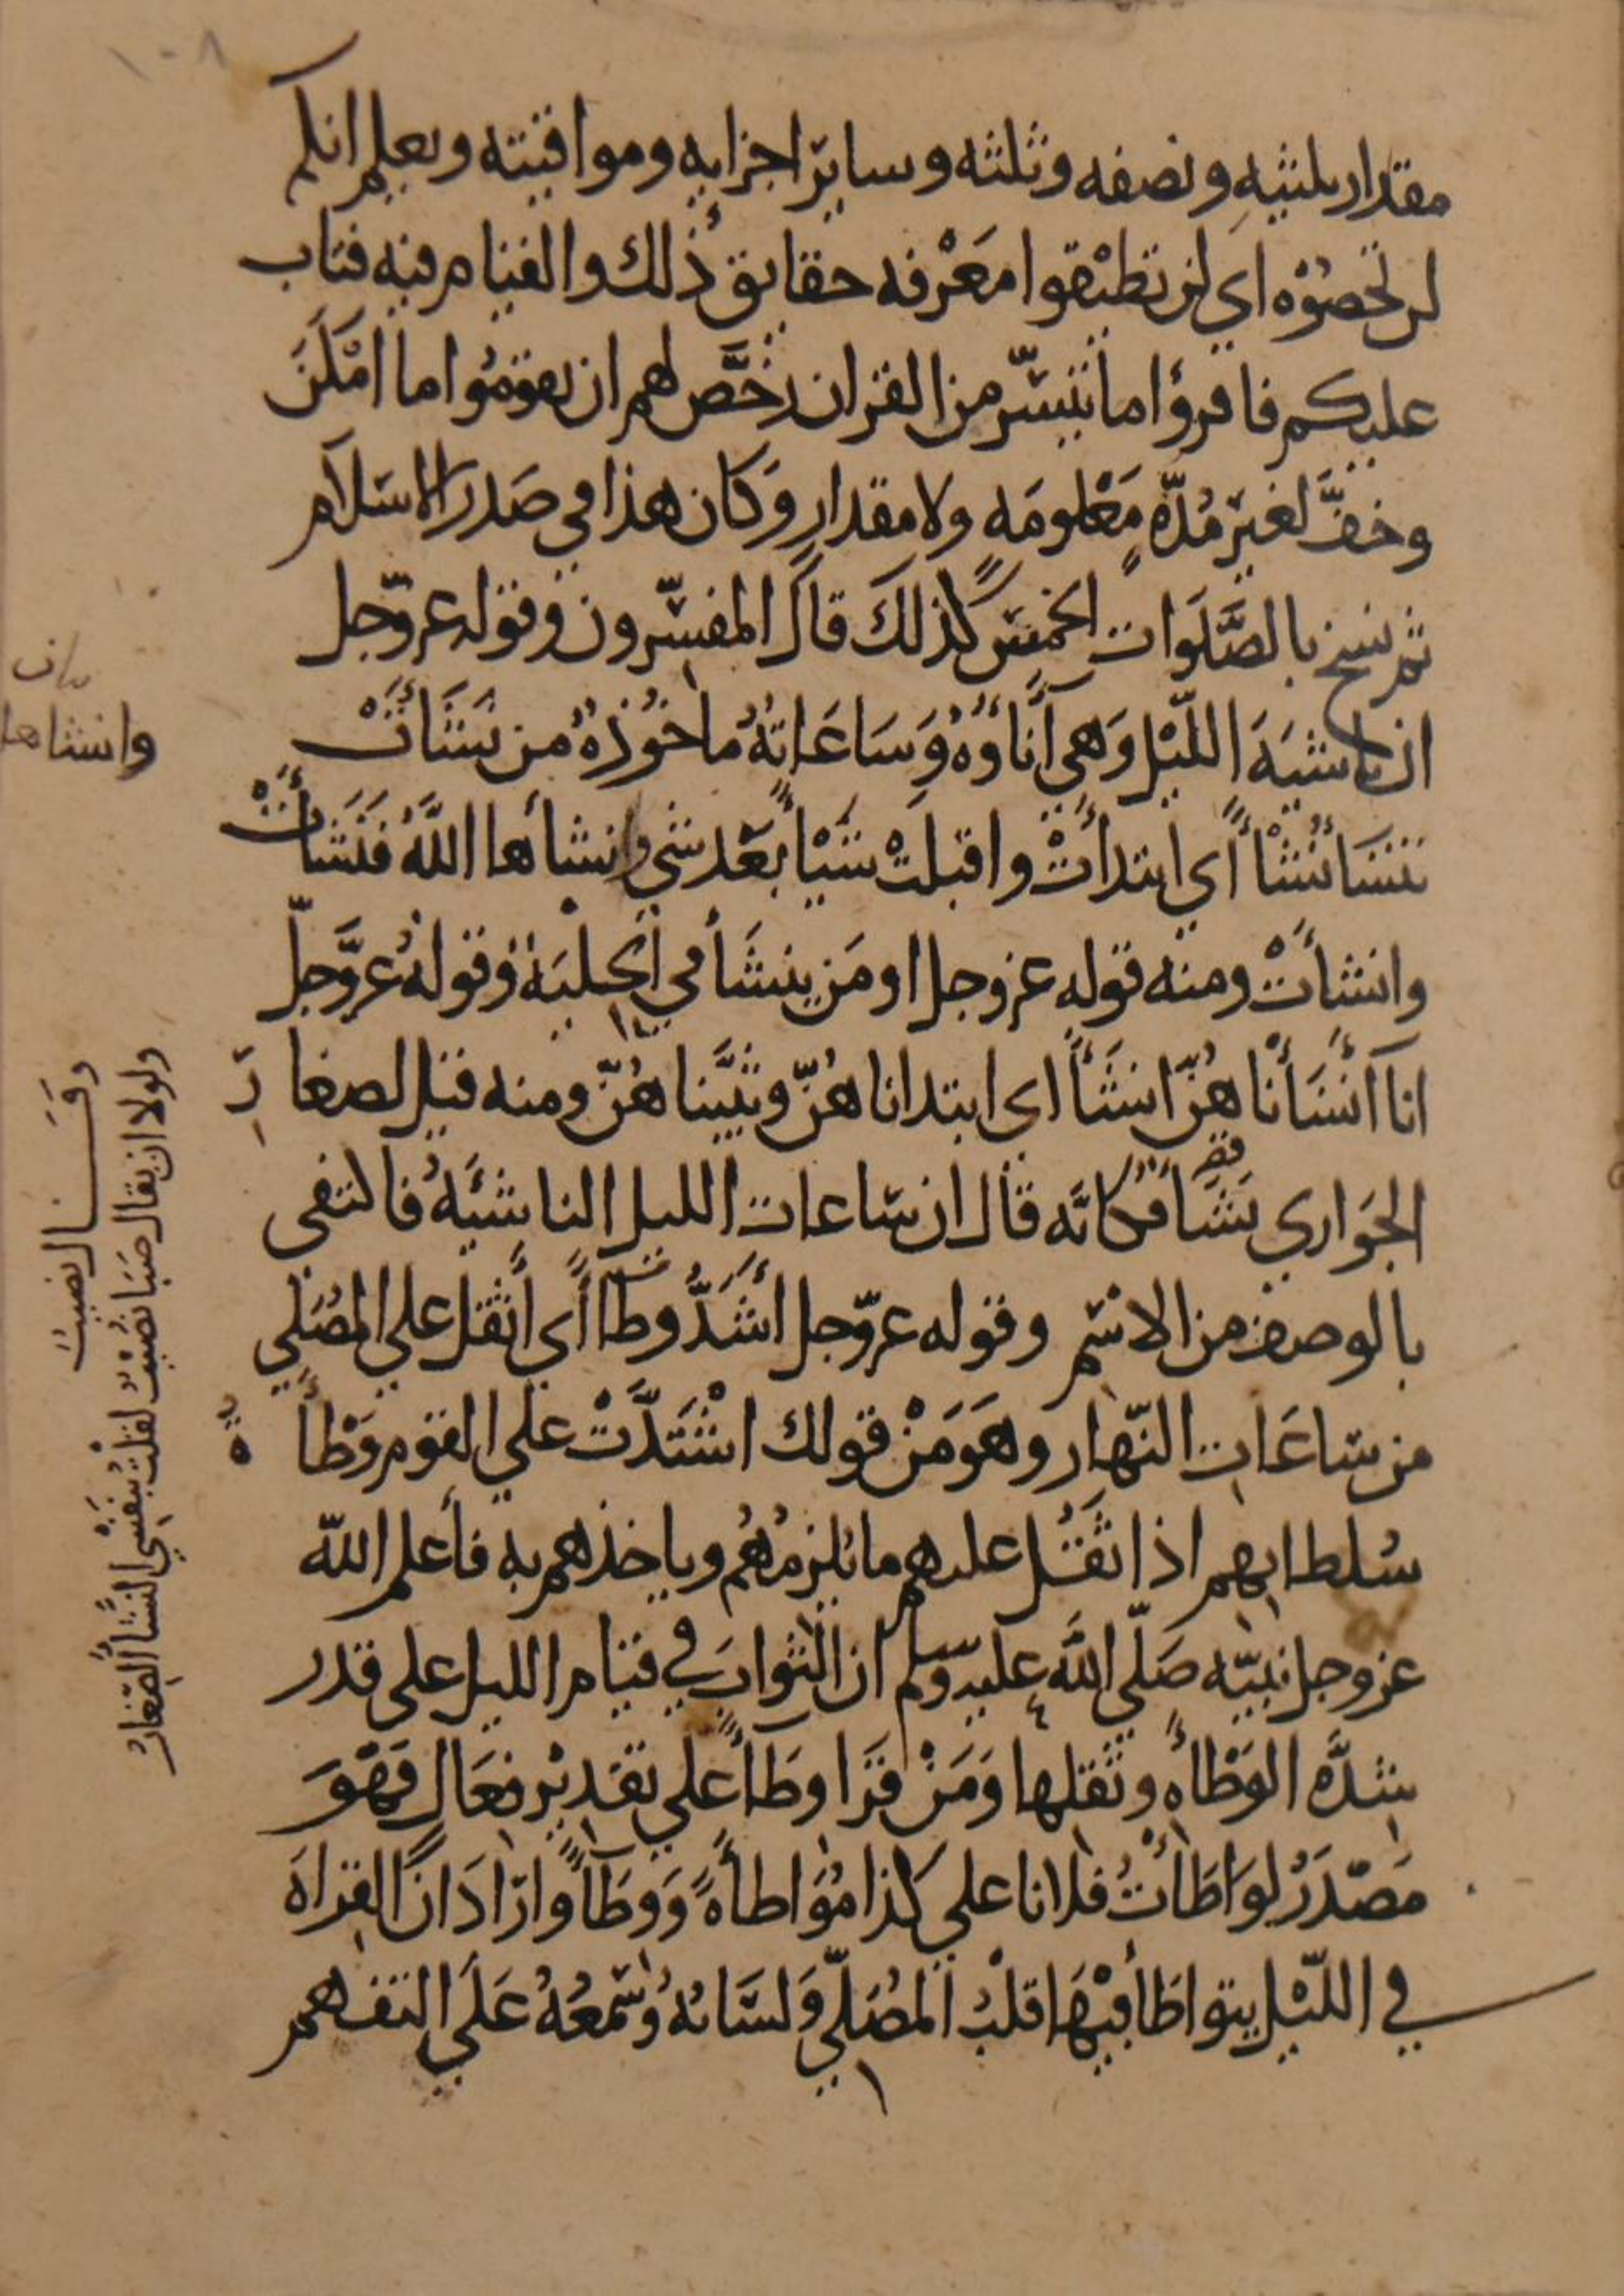 ١٠٨
مقدار ثلثيهِ ونصفه وثلثه وسائر اجزايه ومواقيته ويعلم انكم
لن تحصوْه اي لن تطيْقوا معَرْفه حقايق ذلك والقيام فيه فتاب
عليكم فاقرؤا ما تيسّر من القران رخَّص لهم ان يقومُوا ما امْكَنَ
وخفَّ لغير مُدّهٍ مَعْلومَه ولا مقدارٍ وَكان هذا في صَدر الاسَلام
ثم نسخ بالصَّلوَات الخمسَ كذلكَ قالَ المفسّرون وقوله عزّوجل
ان ناشيَهَ اللّيْل وَهي آنَاؤُهُ وَسَاعَاتهُ ماخُوْذهُ من نَشَأَتْ
تنشَا نُشْأً أي ابتدأتْ واقبلَتْ شَيْأً بَعْد شي وانشأها اللَّهُ فَنَشَأَتْ
وانشأتْ ومنه قوله عزوجل او مَن ينشَأ في الحِليَهْ وقولهُ عزَّوجلّ
انا أنْشَأنْاهُنّ انشَأً اي ابتداناهُنّ ونبَّيناهُنّ ومنه قيل لصغارِ
الجَواري نَشَأ فكانّه قال ان ساعات الليل الناشئَهُ فاكتفى
بالوصف من الاسْم وقوله عزّوجل أشَدُّ وطأً أي أثقل على المُصَلي
من ساعَات النّهار وهَو مَنْ قولك اشْتَدَّتْ علي القوم وَطْأهُ
سُلطانهم اذا ثقَُل عليهم ما يُلزمُهُم وياخذهم به فأعلم اللّه
عزوجل نبيّه صَلّي اللَّه عليه وسلم ان الثوابَ في قيام الليل على قدر
شدَّه الوَطْأهِ وثقلها وَمَنْ قرَا وِطَأً علي تقديْر فعَالٍ فَهْوَ
مَصْدَرُ لواطَأتُ فلانا علي كذا مُوَاطأهً وَوطَأً وارَادَ انَّ القراهَ
في اللّيْل يتواطَأ فيْهَا قلبُ المُصَلّيِ وَلسَانُهُ وُسَمْعُهُ عَلَي التفهم
وانشاها
وقَــال نصيبُ
ولولا ان يقال صَبَا نُصَيْبٌ لقلْتُ بنَفْسِي النَّشَأُ الصّغارُ